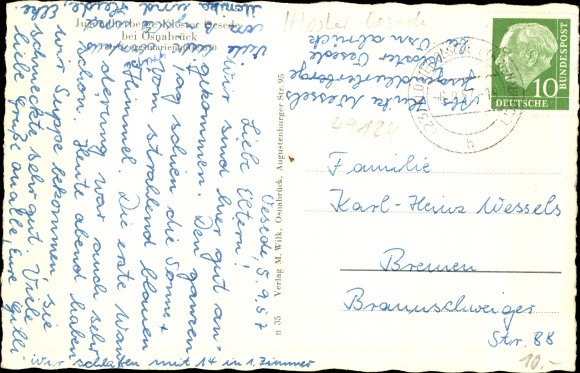 Jugendherberge Kloster Oesede
bei Osnabrück
Kloster Oesede
49124
DEUTSCHE
BUNDESPOST
10
Verlag M. Wilk, Osnabrück, Augustenburger Str. 95
n 35
Oesede, 5.9.57
Liebe Eltern!
Wir sind hier gut an-
gekommen. Den ganzen
Tag schien die Sonne
von strahlend blauen
Himmel. Die erste Wan-
derung war auch sehr
schön. Heute abend haben
wir Suppe bekommen, sie
schmeckte sehr gut. Viele
liebe Grüße an alle, Eure
Wir schlafen mit 14 in 1. Zimmer
Jugendherberge
Kloster Oesede
Osnabrück
Familie
Karl-Heinz Wessels
Bremen
Braunschweiger
Str. 88
10.-